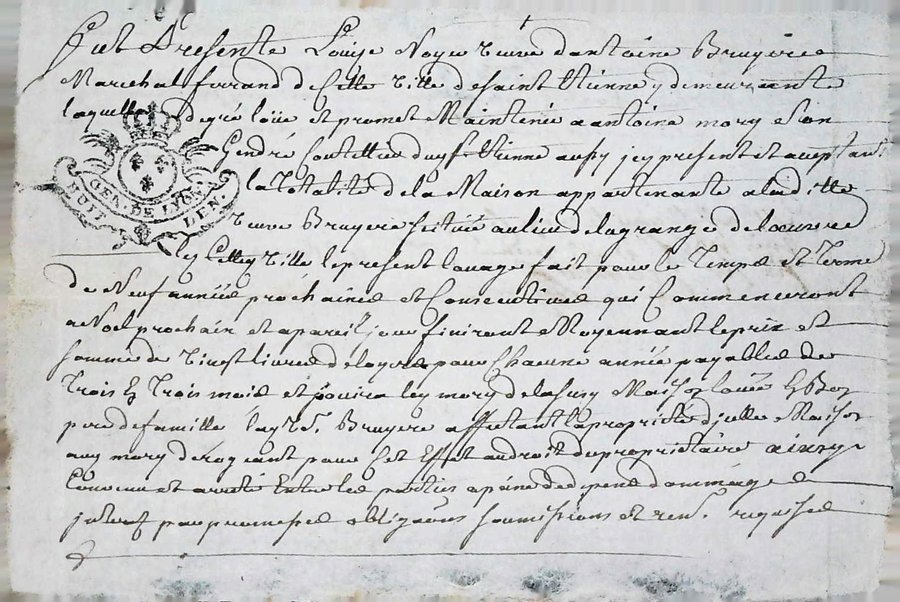 Fut Presente Louise Noyer veuve dantoine Bruyere
Marechal ferrand de cette ville de saint Etienne y demeurante
laquelle de gré loüe et promet Maintenir a antoine mory son
GEN. DE LYON
HUIT DEN.
Gendre Coutellier dud St Etienne aussy icy present et acceptant
la Totalité de la Maison appartenante a laditte
veuve Bruyere scituée au lieu de la grange de loeuvre
en cette ville le present louage fait pour le Temps et Terme
de Neuf années prochaines et Consecutives qui Commenceront
a Noel prochain et a pareil jour finiront Moyennant le prix et
somme de vingt livres de loyer pour Chacune année payables de
Trois en Trois mois et jouira led mory de la susd Maison louée en Bon
pere de famille lad Ve. Bruyere affectant la proprieté dicelle Maison
aud mory derogeant pour cet Effet au droit de proprietaire ainsy
Convenu et arreté Entre les parties a peine de depens dommages
interest par promesses obligaõns soumissions et ren. requises